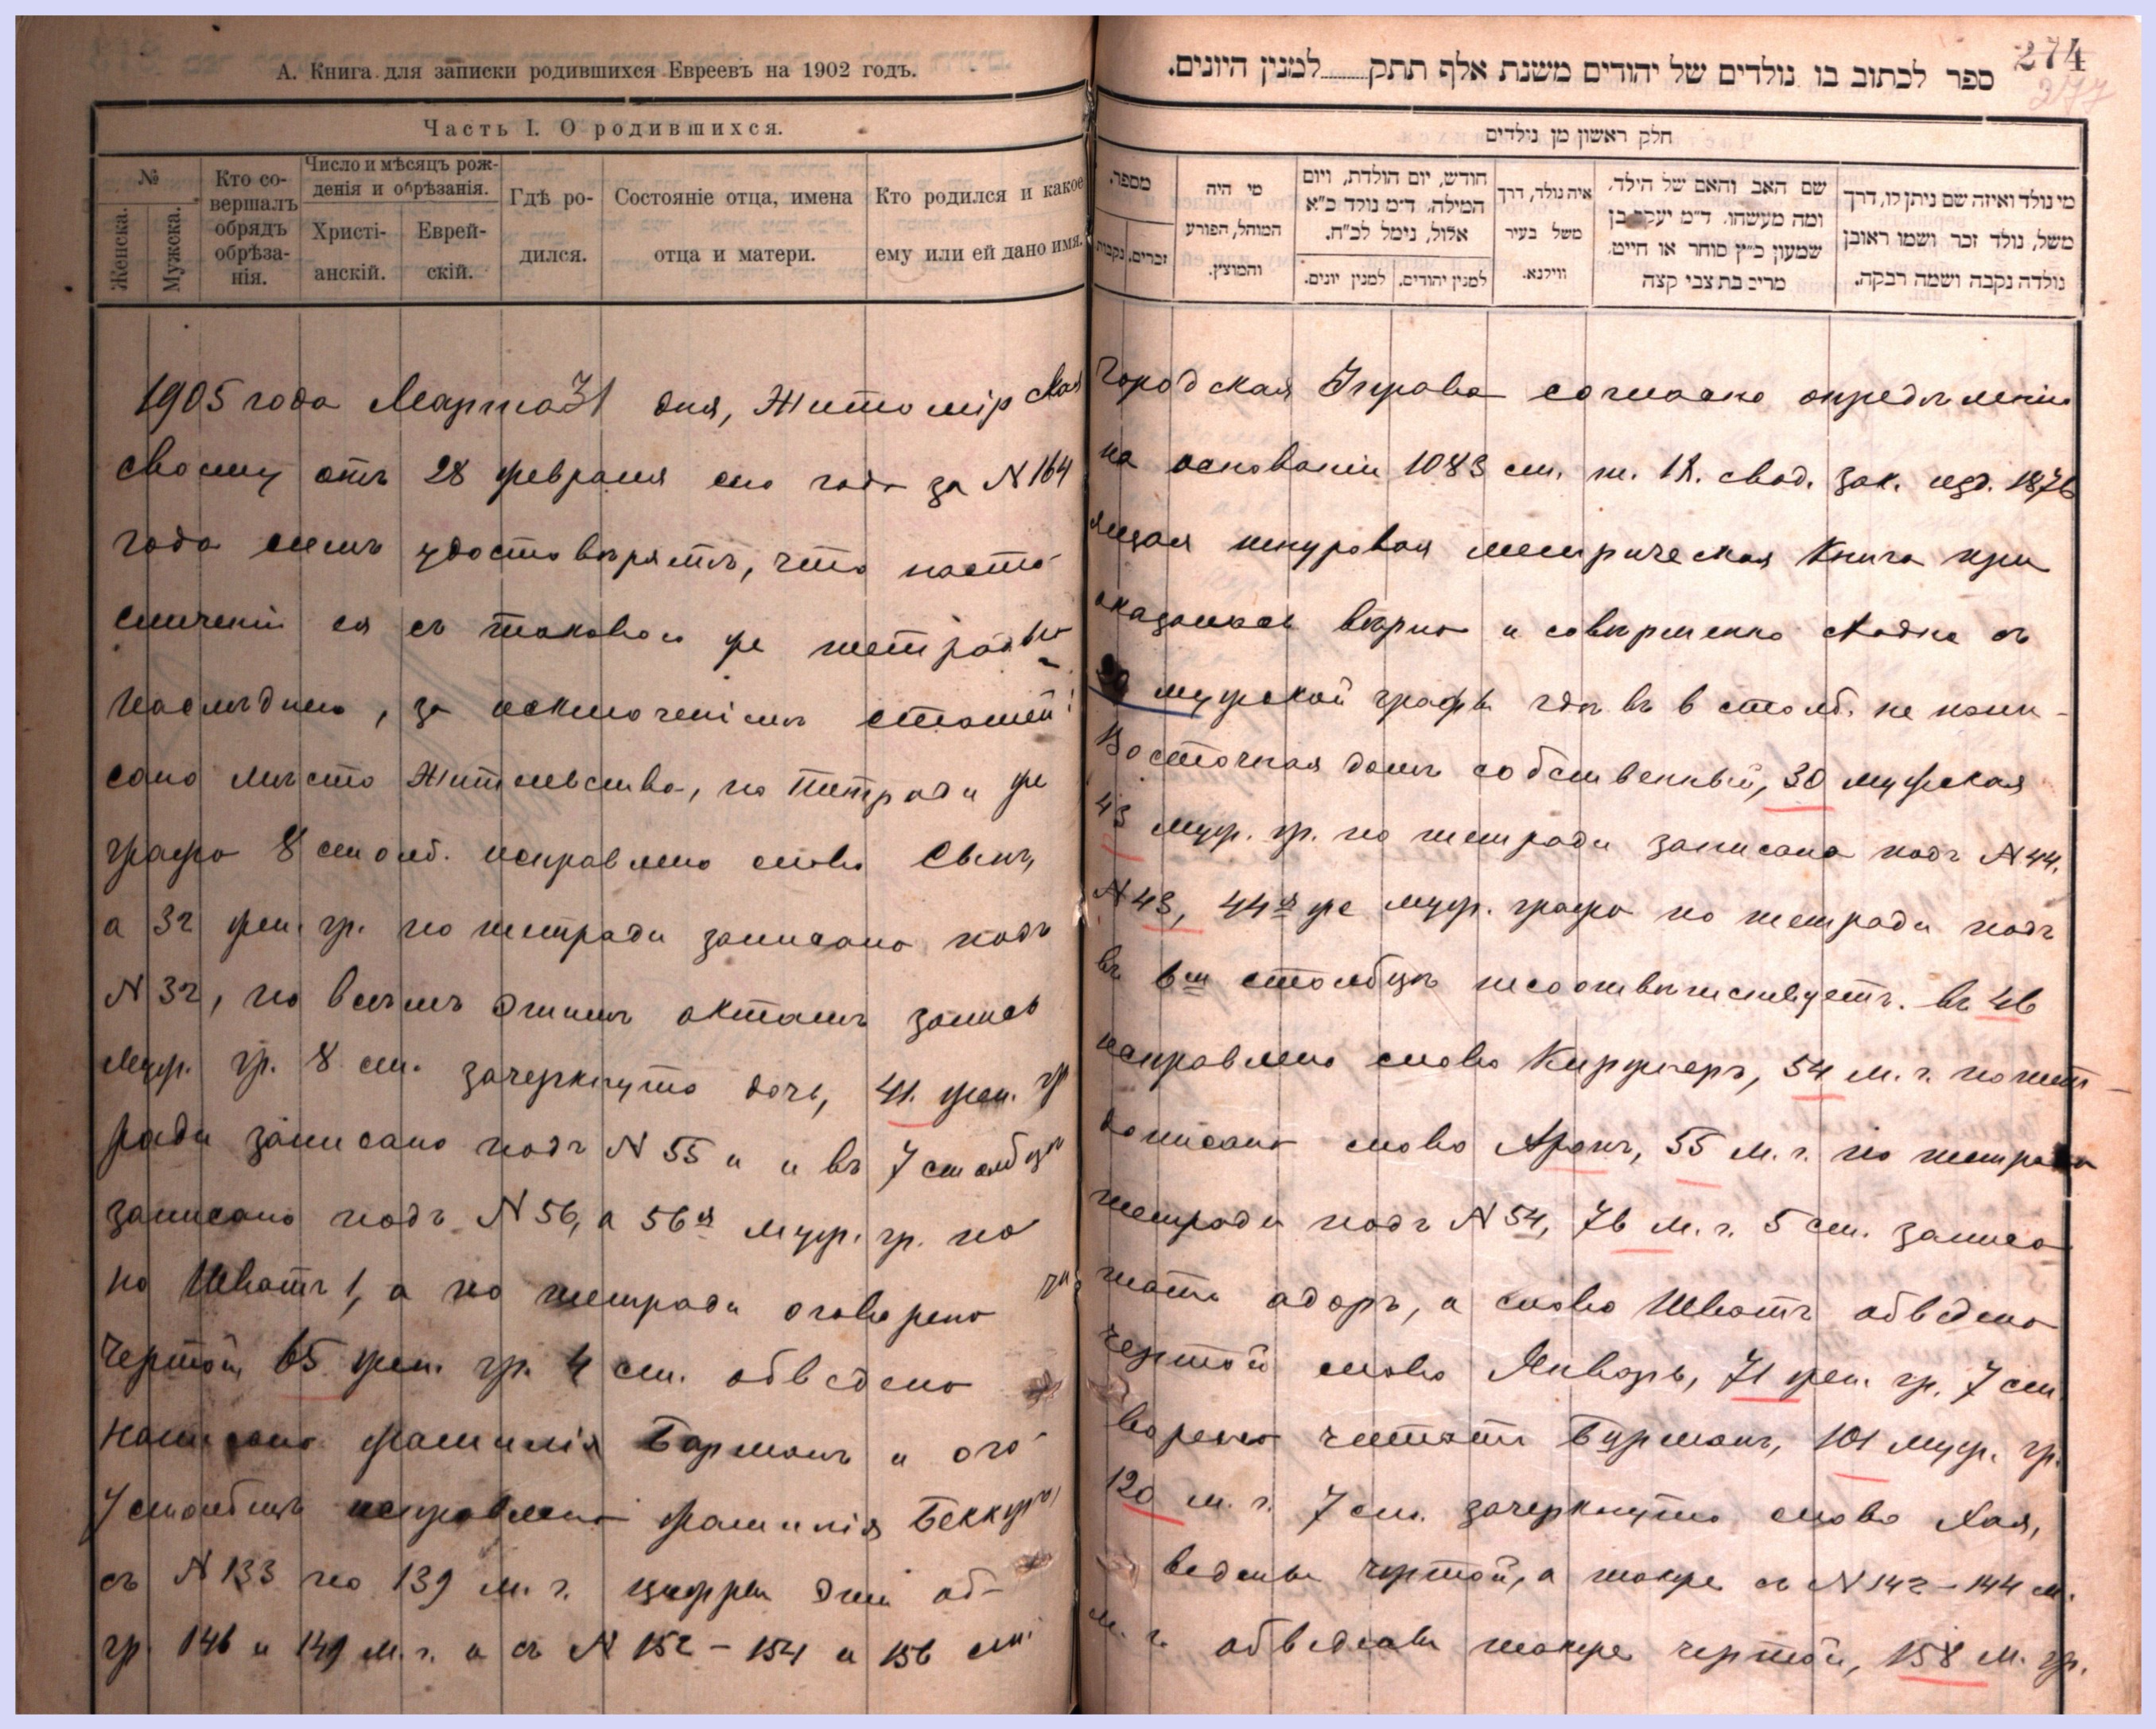 А. Книга для записки родившихся Евреевъ на 1902 годъ.
Часть I. О родившихся.
№
Женска.
Мужеска.
Кто совершалъ обрядъ обрѣзанія.
Число и мѣсяцъ рожденія и обрѣзанія.
Христіанскій.
Еврейскій.
Гдѣ родился.
Состояніе отца, имена отца и матери.
Кто родился и какое ему или ей дано имя.
274
277
ספר לכתוב בו נולדים של יהודים משנת אלף תתק........למנין היונים.
חלק ראשון מן נולדים
מספר.
זכרים.
נקבות
מי היה המוהל, הפורע והמוצץ.
חודש, יום הולדת, ויום המילה. ד״מ נולד כ״א אלול, נימל לכ״ח.
למנין יונים.
למנין יהודים.
איה נולד, דרך משל בעיר ווילנא.
שם האב והאם של הילד, ומה מעשהו. ד״מ יעקב בן שמעון כ״ץ סוחר או חייט, מרים בת צבי קצה
מי נולד ואיזה שם ניתן לו, דרך משל, נולד זכר ושמו ראובן נולדה נקבה ושמה רבקה.
1905 года Марта 31 дня, Житомірская Городская Управа согласно опредѣленію
своему отъ 28 февраля сего года за N 164 на основаніи 1083 ст. т. IX. свод. зак. изд. 1876
года симъ удостовѣряетъ, что настоящая шнуровая метрическая Книга при
сличеніи ея съ таковою же тетрадью оказалась вѣрна и совершенно сходна съ
послѣднею, за исключеніемъ статей: мужской графы гдѣ въ 6 столб. не напи-
сано мѣсто Жительства, по тетради же Восточная домъ собственный, 30 мужская
графа 8 столб. исправлено слово Сынъ, 43 муж. гр. по тетради записана подъ N 44.
а 32 жен. гр. по тетради записано подъ N 43, 44я же муж. графа по тетради подъ
N 32, по всѣмъ этимъ актамъ запись въ 6м столбцѣ несоотвѣтствуетъ. въ 46
муж. гр. 8 ст. зачеркнуто дочь, 41. жен. гр исправлено слово Киржнеръ, 54 м. г. по тет-
ради записано подъ N 55 и въ 7 столбцѣ дописано слово Аронъ, 55 м. г. по тетради
записано подъ N 56, а 56я муж. гр. по тетради подъ N 54, 76 м. г. 5 ст. записа
но Шватъ 1, а по тетради оговорено читать адаръ, а слово Шватъ обведено
чертой, 65 жен. гр. 4 ст. обведено чертой слово Январь, 71 жен. гр. 7 ст
написано фамилія Барманъ и оговорено читать Бурманъ, 101 муж. гр.
7 столбцѣ исправлено фамилія 120 м. г. 7 ст. зачеркнуто слово Хая,
съ N 133 по 139 м. г. цифры дни обведены чертой, а также съ N 142 – 144 м.
гр. 146 и 149 м. г. и съ N 152 – 154 и 156 м. г. обведены также чертой, 158 м. гр.